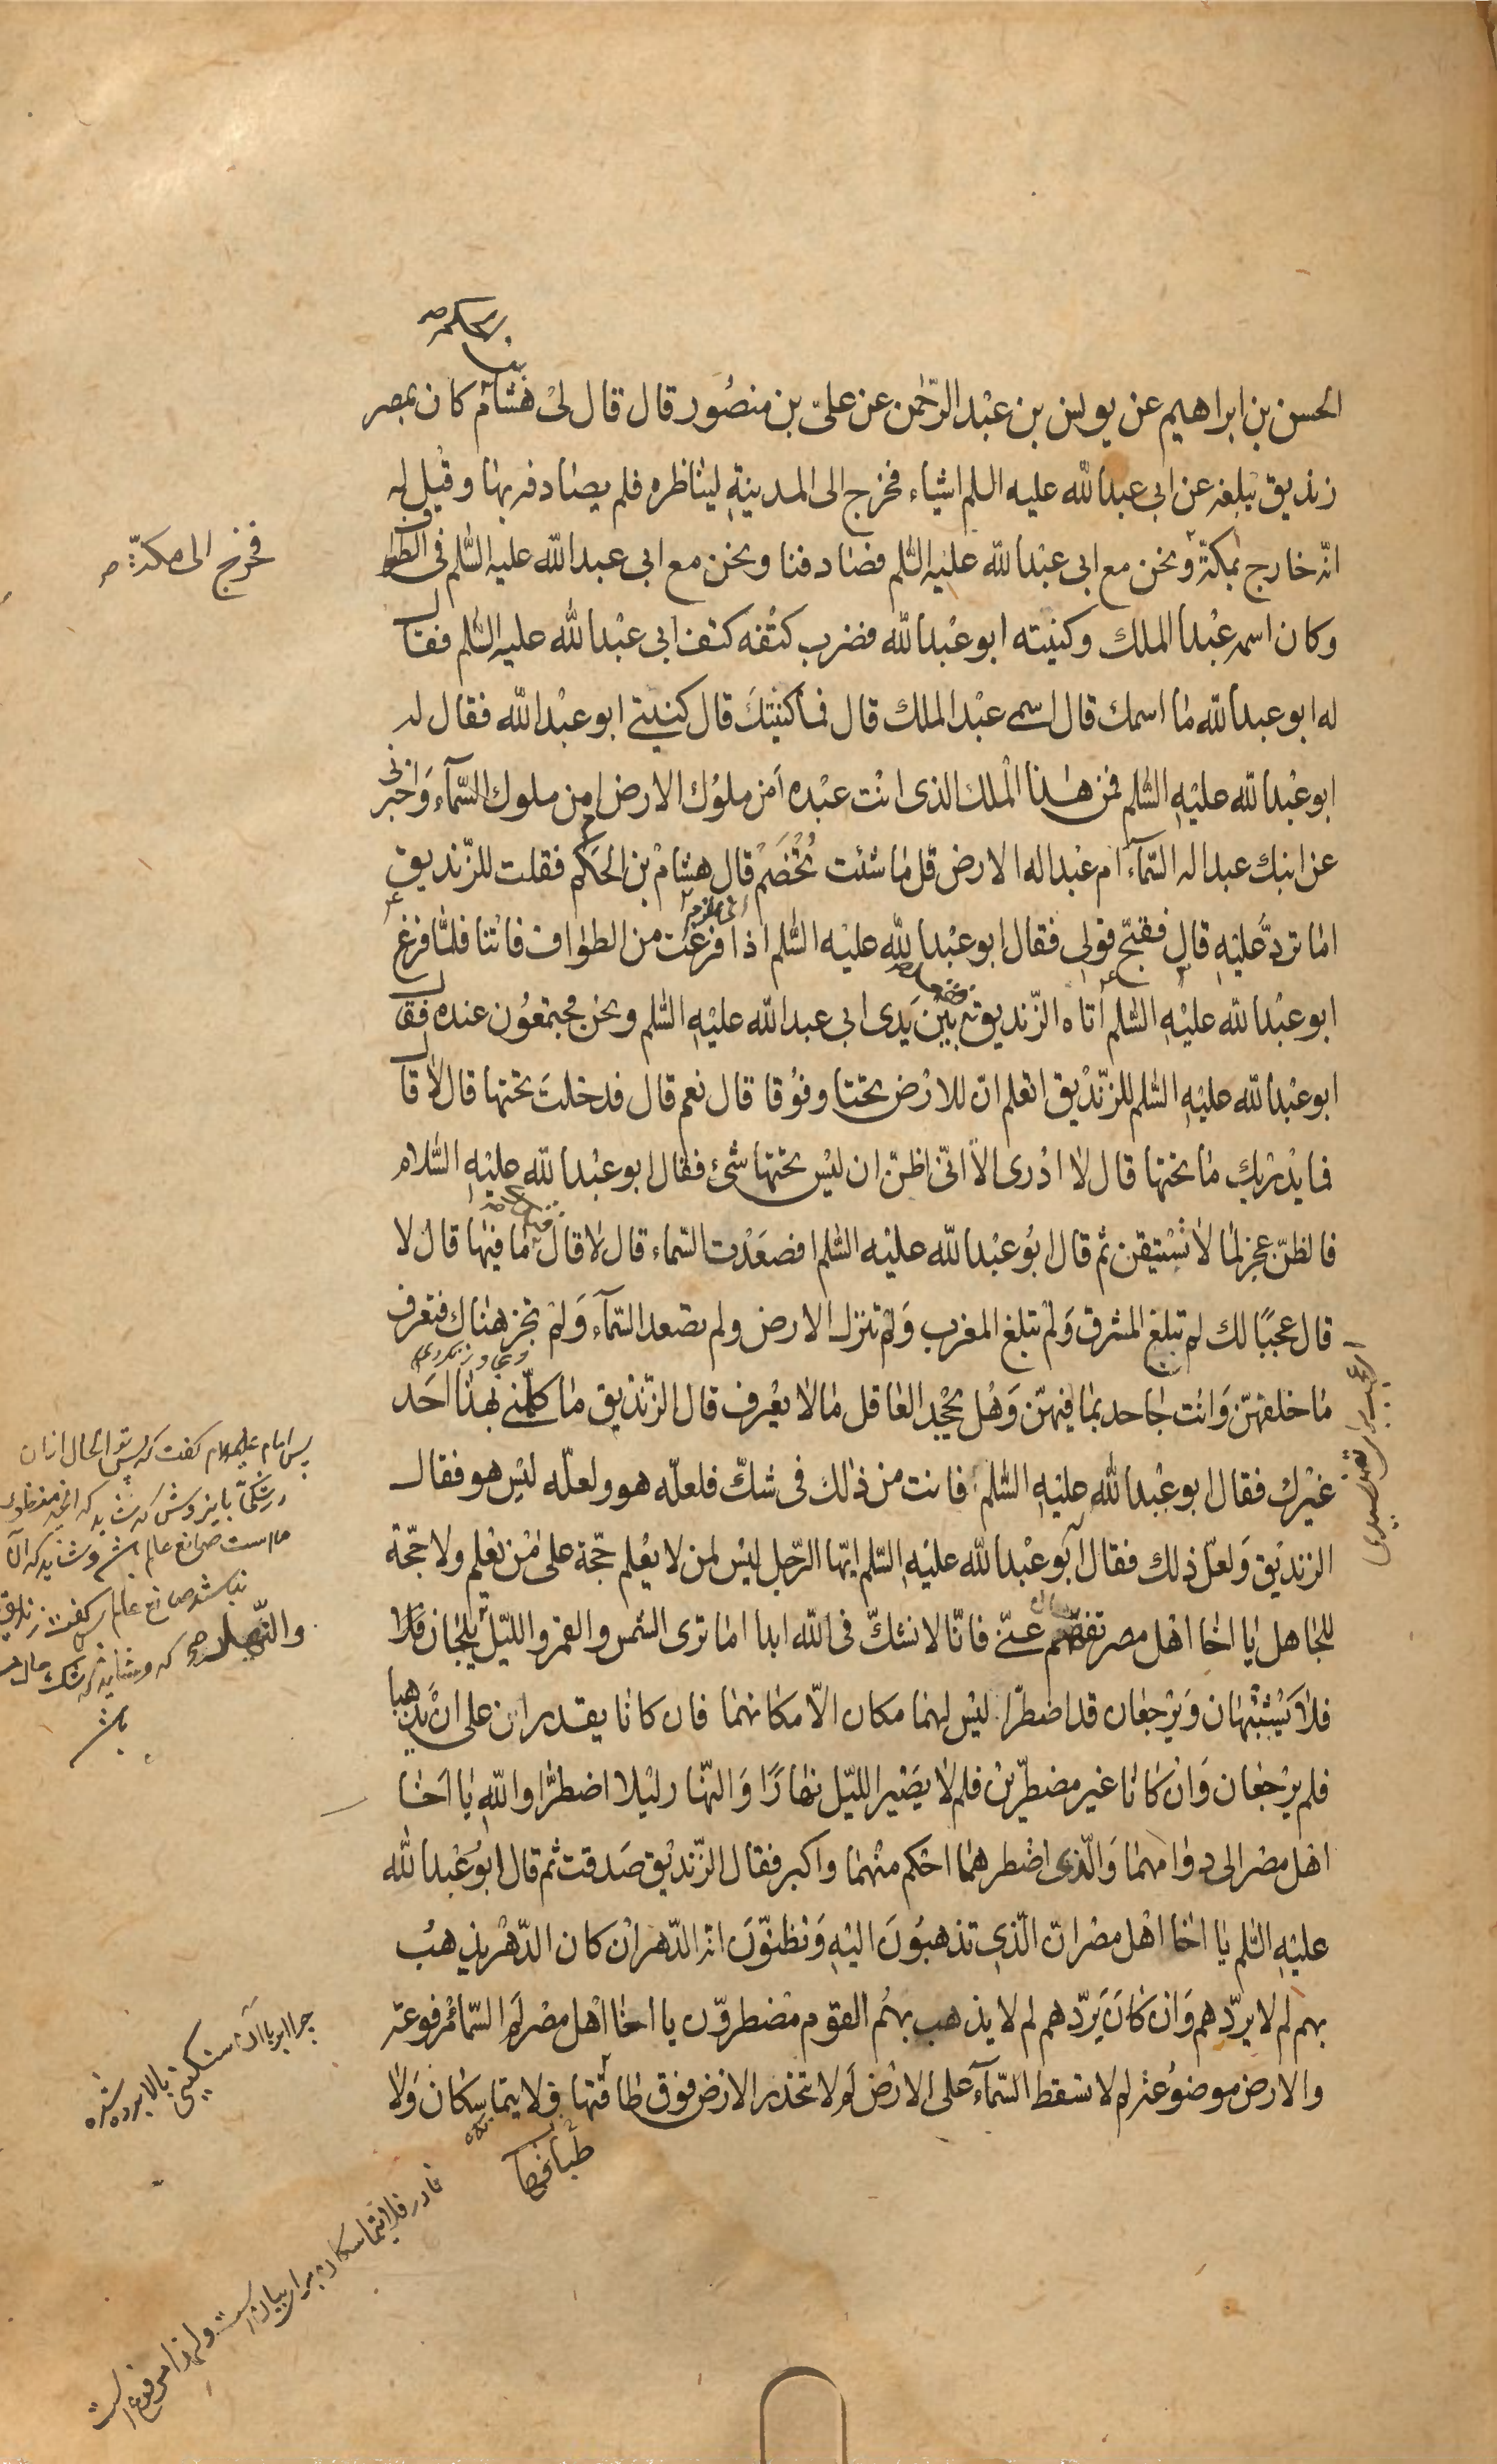 بن الحكم ص
الحسن بن ابراهيم عن يونس بن عبْد الرّحمن عن علىّ بن منصُور قال قال لىْ هشامْ كان بمصر
زنديق يبلغه عن ابى عبدالله عليه السلم اشياء فخرج الى المدينةِ ليناظره فلم يصادفه بها وقيْل له
انّه خارج بمكّة ونحن مع ابى عبْدالله عليْهِ السّلم فصادفنا ونحن مع ابى عبدالله عليه السّلم فى الطواف
فخرج الى مكّة ص
وكان اسمه عبْدالملك وكنيته ابو عبْدالله فضرب كتْفه كتف ابى عبْدالله عليه السّلم فقال
له ابو عبدالله ما اسمك قال اسمى عبْدالملك قال فما كنيتكَ قال كنيتى ابو عبْدالله فقال له
ابو عبْدالله عليْهِ السّلم فمن هذا الْملك الذى انْت عبْده اَمن ملوُك الارض ام من ملوك السّمآء وَاخبرنى
عن ابنك عبد اله السّمآء ام عبْد اله الارض قل ما شئت تُخْصَمْ قال هشامْ بن الحكم فقلت للزّنديق
اما تردّ عليْهِ قال فقبّح قولى فقال ابو عبْدالله عليْه السّلم اذا فرغْت من الطواف فاتنا فلمّا فرغ
ابو عبْدالله عليْهِ السّلم اتاه الزّنديق فقعد بيْن يَدى ابى عبدالله عليْهِ السّلم ونحن مجتمعُون عنده فقال
ابو عبْدالله عليْهِ السّلم للزّنْديق اتعلم انّ للارْض تحتا وفوْقا قال نعم قال فدخلتَ تحتها قال لا قال
فما يدْريك ما تحتها قال لا ادْرى الاّ انّى اظنّ ان ليْس تحتها شئ فقال ابو عبْدالله عليْهِ السّلام
فالظنّ عجز لما لا تسْتيقن ثم قال ابُو عبْدالله عليْه السّلم افصعَدْت السّماء قال لا قال ما فيها قال لا
قال عجبًا لك لم تبلغ المشرق وَلم تبلغ المغرب وَلم تنزل الارض ولم تصعد السّمآء وَلم تجز هناك فتعرف
ما خلفهنّ وَانت جاحد بما فيهنّ وَهْل يجْحد العاقل ما لا يعْرف قال الزّنْديق ما كلّمنى بهذا احَد
غيْرك فقال ابو عبْدالله عليْهِ السّلم فانت من ذٰلك فى شكّ فلعلّه هو ولعلّه ليْس هو فقال
الزنديْق وَلعلّ ذلك فقال ابُو عبْدالله عليْهِ السّلم ايّها الرّجل ليْس لمن لا يعْلم حجّة على مْن يعْلم ولا حجّة
للجاهل يا اخا اهْل مصر تفهّم عنّى فانّا لا نشكّ فى الله ابدا اما ترى الشمس والقمر والليْل يلجان فلا
والنّهار ص
فلا يَشْتبْهان وَيرْجعان قد اضطرّا ليْس لهما مكان الاّ مكانهما فان كانا يقدران على انْ يذهبا
فلم يرْجعان وَان كانا غير مضطرّينْ فلم لا يصَيْر الليْل نهارًا وَالنّهار ليْلا اضطرّا والله يا اَخا
اهْل مصْر الى دوامهما وَالّذى اضْطرهما احْكم منْهما واكبر فقال الزّنديْق صَدقت ثم قال ابُو عبْدالله
عليْهِ السّلم يا اخا اهْل مصْر انّ الّذى تذهبُونَ اليْهِ وَتظنّوَن انّه الدّهر انْ كان الدّهْر يذهبُ
بهم لم لا يردّهم وَان كانَ يَردّهم لم لا يذهب بهمُ القوم مضطروّن يا اخا اهْل مصْر لَم السّما مرْفوعة
والارض موضوُعة لم لا تسقط السّمآء على الارْض لَم لا تحذر الارْض فوق طاقتها فلا يتماسكان وَلا
طباقها
پس امام عليه السلام كفت كه پس تو الحال ازان
چرا ابر باآن سنكينى بالا برده شده